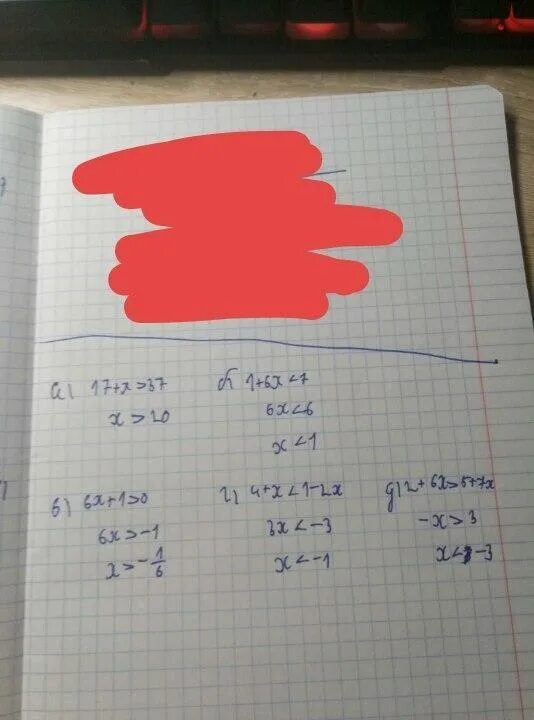 а) 17+x>37
x>20
б) 1+6x<7
6x<6
x<1
в) 6x+1>0
6x>-1
x>-1/6
г) 4+x<1-2x
3x<-3
x<-1
д) 2+6x>5+7x
-x>3
x<-3